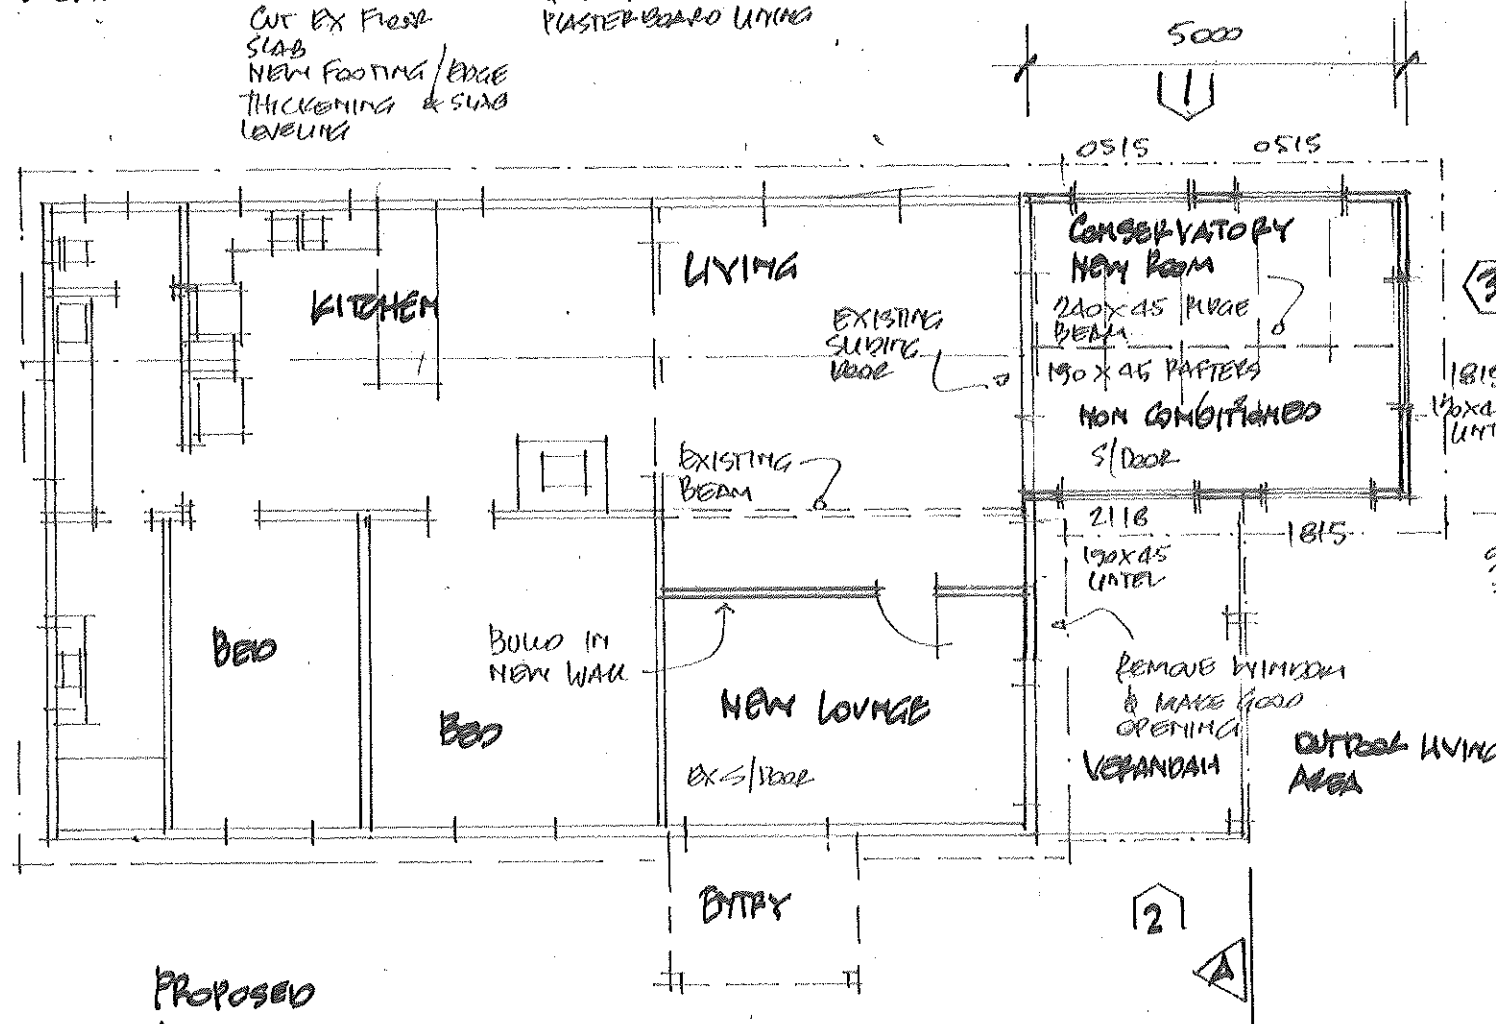 CUT EX FLOOR
SLAB
NEW FOOTING/EDGE
THICKENING & SLAB
LEVELING
PLASTERBOARD LIVING
5000
1
0515
0515
CONSERVATORY
NEW ROOM
240X45 RIDGE
BEAM
190X45 RAFTERS
NON CONDITIONED
S/DOOR
3
1815
LIVING
EXISTING
SLIDING
DOOR
KITCHEN
EXISTING
BEAM
2118
190X45
LINTEL
1815
BED
BUILD IN
NEW WALL
BED
NEW LOUNGE
EX S/DOOR
REMOVE WINDOW
& MAKE GOOD
OPENING
VERANDAH
OUTDOOR LIVING
AREA
ENTRY
2
A
PROPOSED